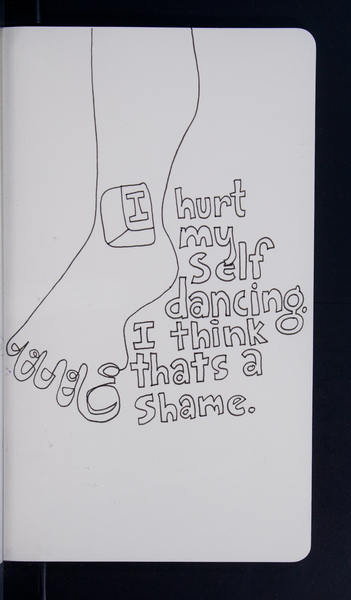 I hurt
my
self
dancing.
I think
thats a
shame.